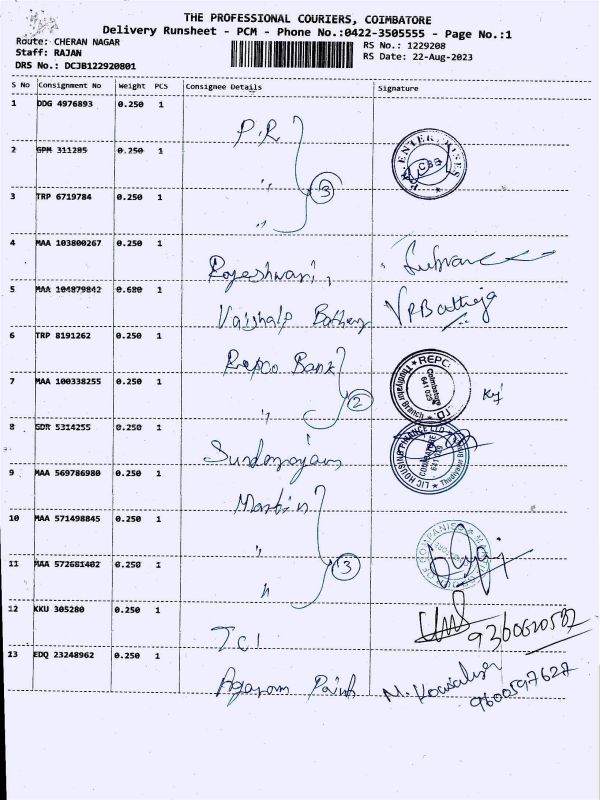 THE PROFESSIONAL COURIERS, COIMBATORE
Delivery Runsheet - PCM - Phone No.:0422-3505555 - Page No.:1
Route: CHERAN NAGAR
RS No.: 1229208
Staff: RAJAN
RS Date: 22-Aug-2023
DRS No.: DCJB122920801
S No Consignment No Weight PCS Consignee Details Signature
1 DDG 4976893 0.250 1
P.R
2 GPM 311285 0.250 1
" 3
3 TRP 6719784 0.250 1
"
4 MAA 103800267 0.250 1
Rajeshwari,
5 MAA 104879842 0.680 1
VPBathija
6 TRP 8191262 0.250 1
Repco Bank
7 MAA 100338255 0.250 1
" 2
8 GDR 5314255 0.250 1
9 MAA 569786980 0.250 1
Martin
10 MAA 571498845 0.250 1
"
11 MAA 572681402 0.250 1
" 3
12 KKU 305280 0.250 1
TCI
9360620582
13 EDQ 23248962 0.250 1
Agaram Paints
9600597627
ENTERPRISES
CBB
REPCO
Coimbatore
641 029
Thudiyalur Branch
LIC HOUSING FINANCE LTD
COIMBATORE
641 029